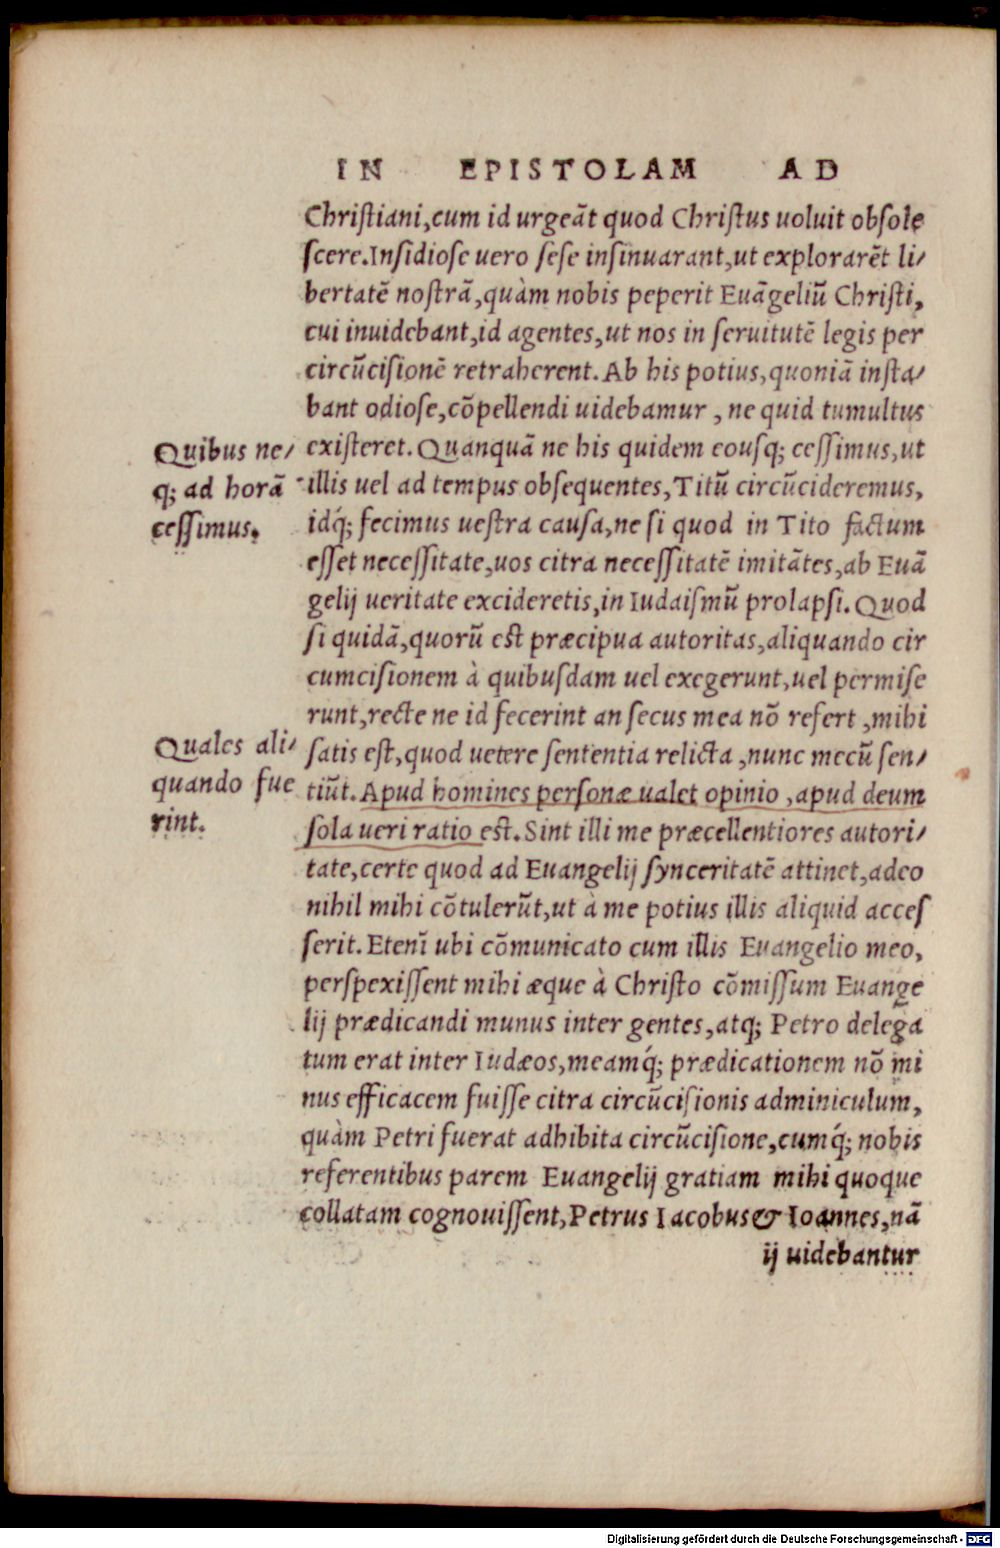 IN EPISTOLAM AD
Christiani,cum id urgeãt quod Christus uoluit obsole
scere.Insidiose uero sese insinuarant,ut explorarẽt li/
bertatẽ nostrã,quàm nobis peperit Euãgeliũ Christi,
cui inuidebant,id agentes,ut nos in seruitutẽ legis per
circũcisionẽ retraherent.Ab his potius,quoniã insta/
bant odiose,cõpellendi uidebamur, ne quid tumultus
existeret.Quanquã ne his quidem eousq; cessimus,ut
illis uel ad tempus obsequentes,Titũ circũcideremus,
idq́; fecimus uestra causa,ne si quod in Tito factum
esset necessitate,uos citra necessitatẽ imitãtes,ab Euã
gelij ueritate excideretis,in Iudaismũ prolapsi.Quod
si quidã,quorũ est præcipua autoritas,aliquando cir
cumcisionem à quibusdam uel exegerunt,uel permise
runt,recte ne id fecerint an secus mea nõ refert,mihi
satis est,quod uetere sententia relicta,nunc mecũ sen/
tiũt.Apud homines personæ ualet opinio,apud deum
sola ueri ratio est.Sint illi me præcellentiores autori/
tate,certe quod ad Euangelij synceritatẽ attinet,adeo
nihil mihi cõtulerũt,ut à me potius illis aliquid acces
serit.Etenĩ ubi cõmunicato cum illis Euangelio meo,
perspexissent mihi æque à Christo cõmissum Euange
lij prædicandi munus inter gentes,atq; Petro delega
tum erat inter Iudæos,meamq́; prædicationem nõ mi
nus efficacem fuisse citra circũcisionis adminiculum,
quàm Petri fuerat adhibita circũcisione,cumq́; nobis
referentibus parem Euangelij gratiam mihi quoque
collatam cognouissent,Petrus Iacobus& Ioannes,nã
ij uidebantur
Quibus ne/
q; ad horã
cessimus.
Quales ali/
quando fue
rint.
Digitalisierung gefördert durch die Deutsche Forschungsgemeinschaft - DFG